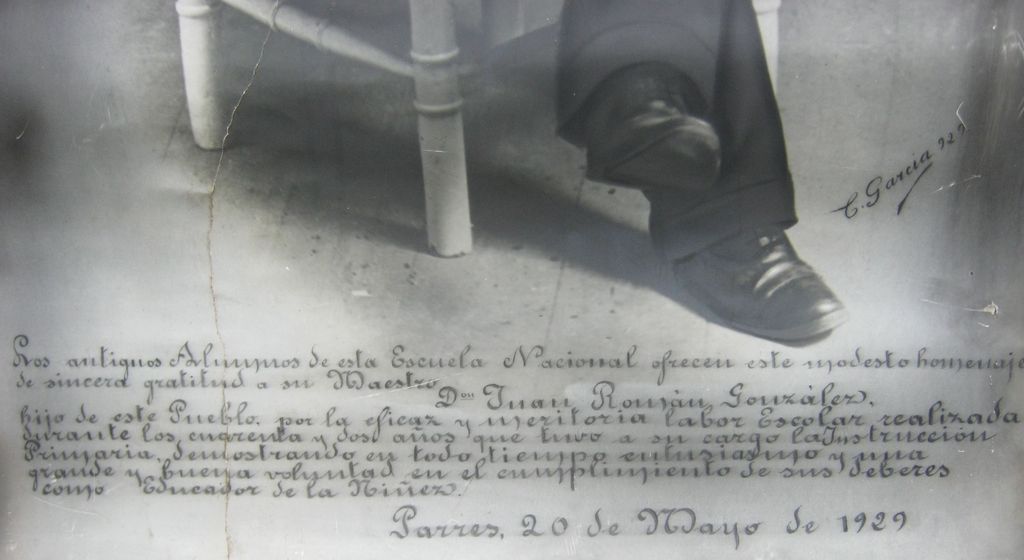 C. Garcia 929
Los antiguos Alumnos de esta Escuela Nacional ofrecen este modesto homenaje
de sincera gratitud a su Maestro
Don Juan Román González,
hijo de este Pueblo, por la eficaz y meritoria labor Escolar realizada
durante los cuarenta y dos años que tuvo a su cargo la Instrucción
Primaria, demostrando en todo tiempo entusiasmo y una
grande y buena voluntad en el cumplimiento de sus deberes
como Educador de la Niñez.
Parres, 20 de Mayo de 1929